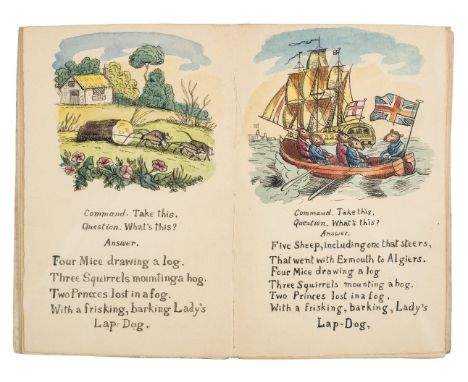 Command. Take this.
Question. What's this?
Answer.
Four Mice drawing a log.
Three Squirrels mounting a hog.
Two Princes lost in a fog.
With a frisking, barking Lady's
Lap-Dog.
Command. Take this.
Question. What's this?
Answer.
Five Sheep, including one that steers,
That went with Exmouth to Algiers.
Four Mice drawing a log
Three Squirrels mounting a hog.
Two Princes lost in a fog.
With a frisking, barking, Lady's
Lap-Dog,